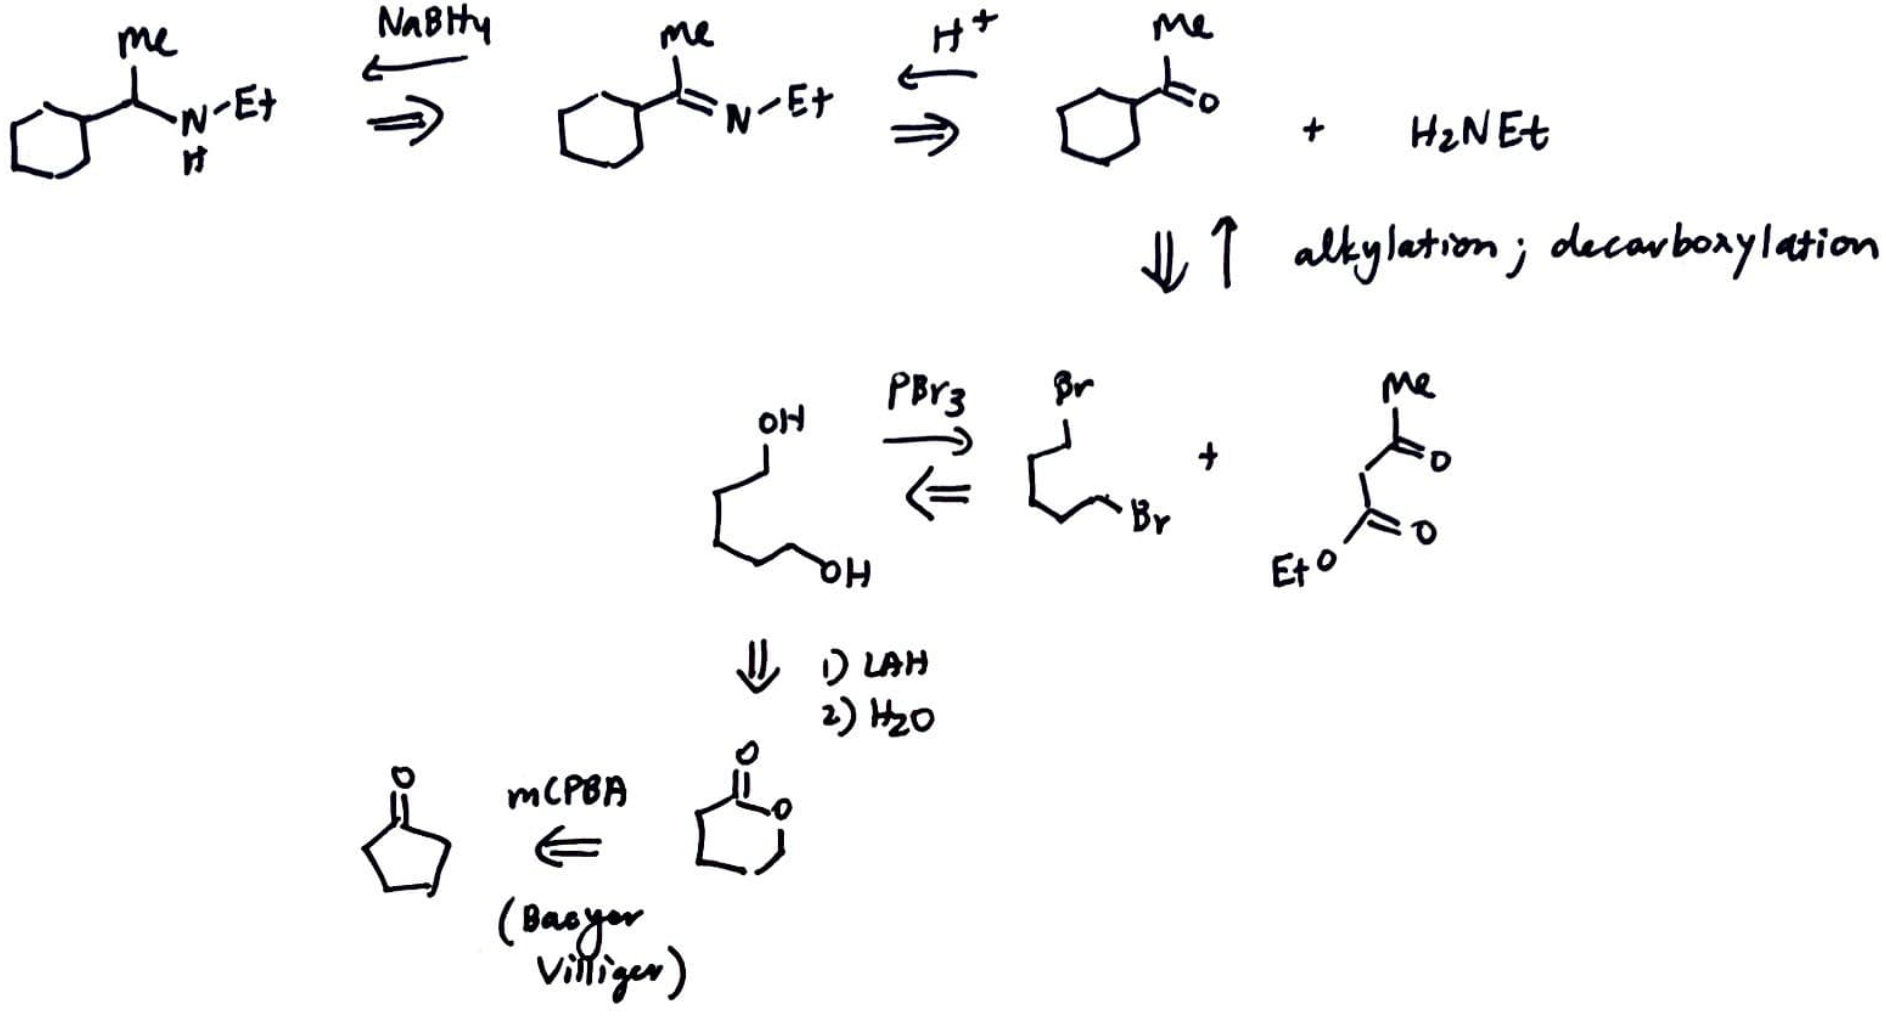 Me
NaBH4
Me
H+
Me
N-Et
H
N-Et
O
+
H2NEt
alkylation; decarboxylation
OH
PBr3
Br
+
Me
O
Br
OH
O
EtO
1) LAH
2) H2O
O
mCPBA
O
O
(Baeyer
Villiger)